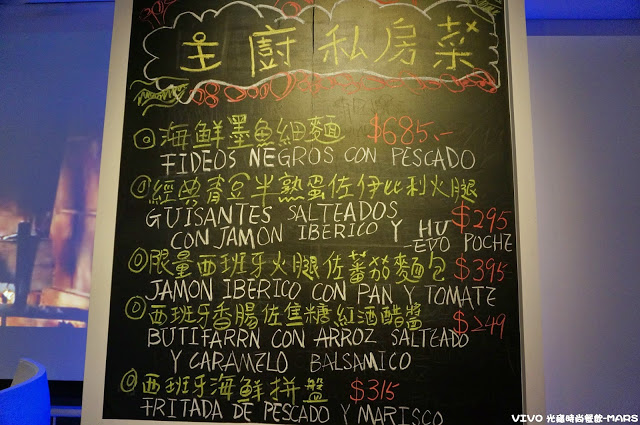 主廚私房菜
◎海鮮墨魚細麵 $685.-
FIDEOS NEGROS CON PESCADO
◎經典青豆半熟蛋佐伊比利火腿
GUISANTES SALTEADOS
CON JAMON IBERICO Y HU $295
-EVO POCHE
◎限量西班牙火腿佐蕃茄麵包 $395
JAMON IBERICO CON PAN Y TOMATE
◎西班牙香腸佐焦糖紅酒醋醬 $249
BUTIFARRN CON ARROZ SALTEADO
Y CARAMELO BALSAMICO
◎西班牙海鮮拼盤 $315
FRITADA DE PESCADO Y MARISCO
VIVO 光廊時尚餐飲-MARS